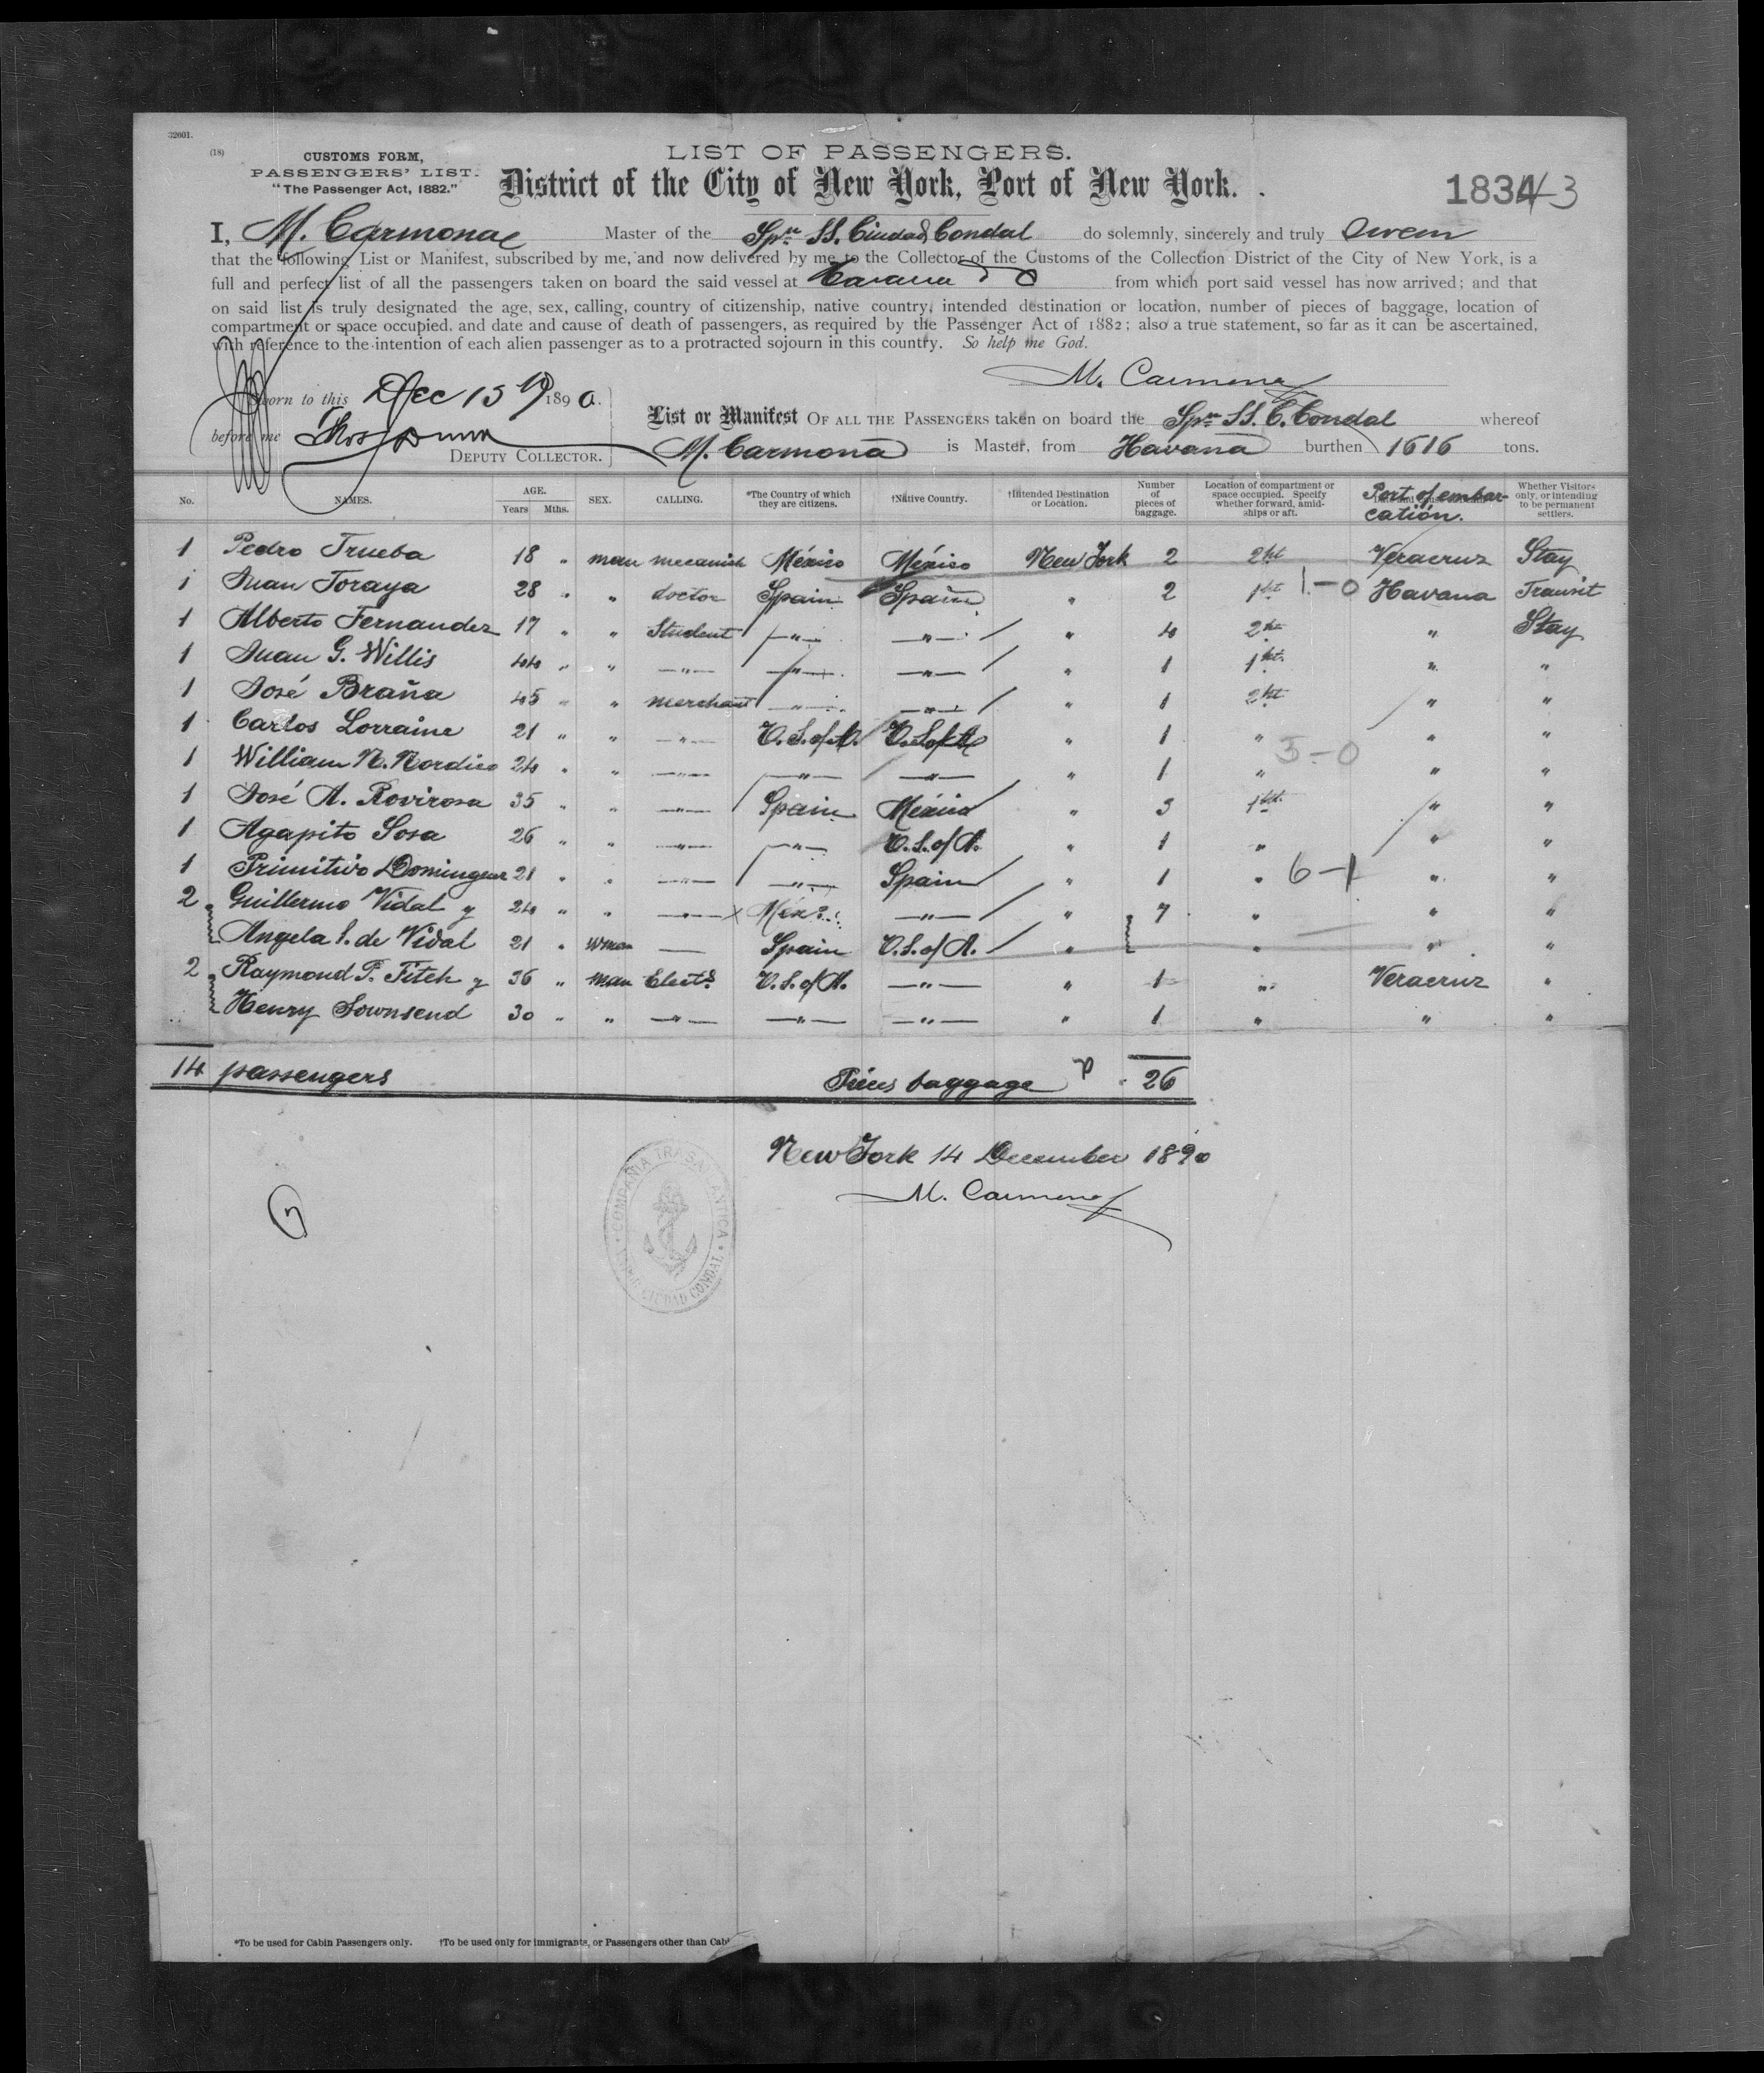 32601.
(18)
CUSTOMS FORM,
PASSENGERS' LIST.
"The Passenger Act, 1882."
LIST OF PASSENGERS.
District of the City of New York, Port of New York.
1834
I, M. Carmona Master of the Spn SS. Ciudad Condal do solemnly, sincerely and truly swear
that the following List or Manifest, subscribed by me, and now delivered by me to the Collector of the Customs of the Collection District of the City of New York, is a
full and perfect list of all the passengers taken on board the said vessel at Havana from which port said vessel has now arrived; and that
on said list is truly designated the age, sex, calling, country of citizenship, native country, intended destination or location, number of pieces of baggage, location of
compartment or space occupied, and date and cause of death of passengers, as required by the Passenger Act of 1882; also a true statement, so far as it can be ascertained,
with reference to the intention of each alien passenger as to a protracted sojourn in this country. So help me God.
M. Carmona
Sworn to this Dec 15 1890.
before me
DEPUTY COLLECTOR.
List or Manifest OF ALL THE PASSENGERS taken on board the Spn SS. C. Condal whereof
M. Carmona is Master, from Havana burthen 1616 tons.
No. NAMES. AGE. Years Mths. SEX. CALLING. *The Country of which they are citizens. †Native Country. †Intended Destination or Location. Number of pieces of baggage. Location of compartment or space occupied. Specify whether forward, amidships or aft. Port of embarcación. Whether Visitors only, or intending to be permanent settlers.
1 Pedro Trueba 18 " man mecanich México México New York 2 2nt Veracruz Stay
1 Juan Toraya 28 " " doctor Spain Spain " 2 1st 1-0 Havana Transit
1 Alberto Fernandez 17 " " Student " " " 4 2nt " Stay
1 Juan G. Willis 44 " " " " " " 1 1st " "
1 José Braña 45 " " merchant " " " 1 2nt " "
1 Carlos Lorraine 21 " " " U.S. of A. U.S. of A. " 1 " " "
5-0
1 William N. Nordico 24 " " " " " " 1 " " "
1 José A. Rovirosa 35 " " " Spain México " 3 1st " "
1 Agapito Sosa 26 " " " " U.S. of A. " 1 " " "
1 Primitivo Dominguez 21 " " " " Spain " 1 " 6-1 " "
2 Guillermo Vidal y 24 " " " Méx " " 7 " " "
Angela S. de Vidal 21 " woman — Spain U.S. of A. " " " "
2 Raymond P. Fitch y 36 " man Elect. U.S. of A. " " 1 " Veracruz "
Henry Townsend 30 " " " " " " 1 " " "
14 passengers Pieces baggage 26
New York 14 December 1890
M. Carmona
COMPAÑIA TRASATLANTICA
CIUDAD CONDAL
*To be used for Cabin Passengers only. †To be used only for immigrants, or Passengers other than